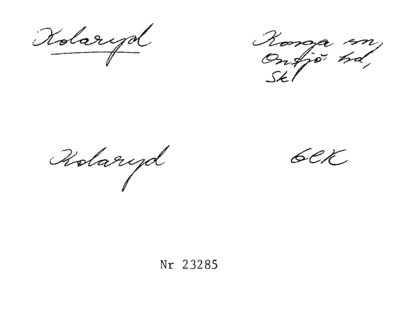 Kolaryd
Konga sn,
Onsjö hd,
Sk
Kolaryd
GEK
Nr 23285